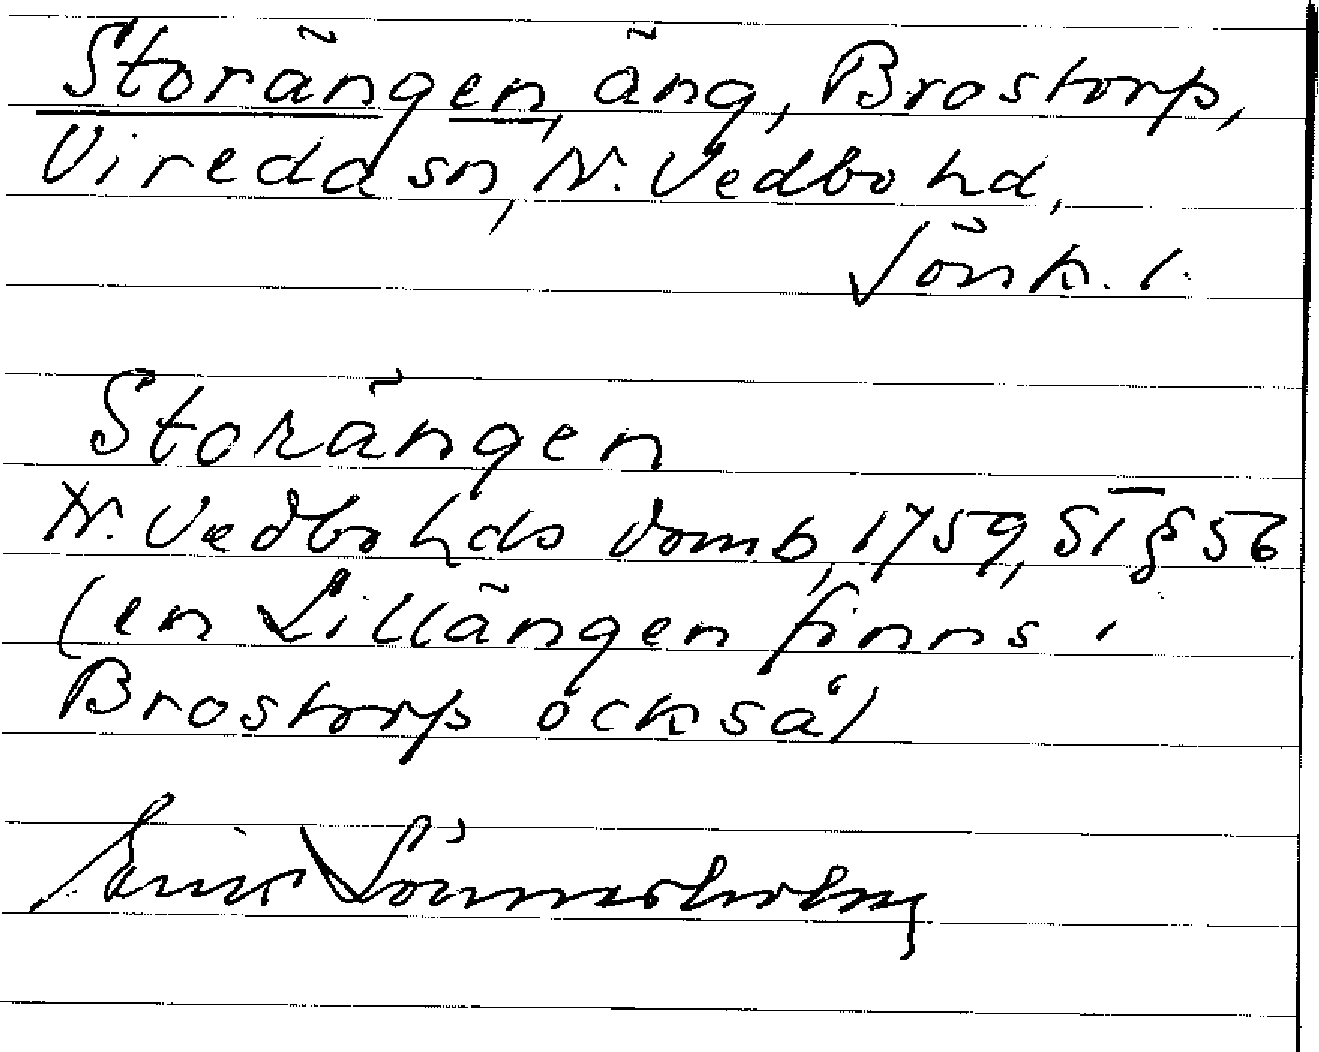 Storängen, äng, Brostorp,
Vireda sn, N. Vedbo hd,
Jönk. l.
Storängen
N. Vedbo hds domb, 1759, S1 § 56
(en Lillängen finns i
Brostorp också)
Erik Lönnerholm